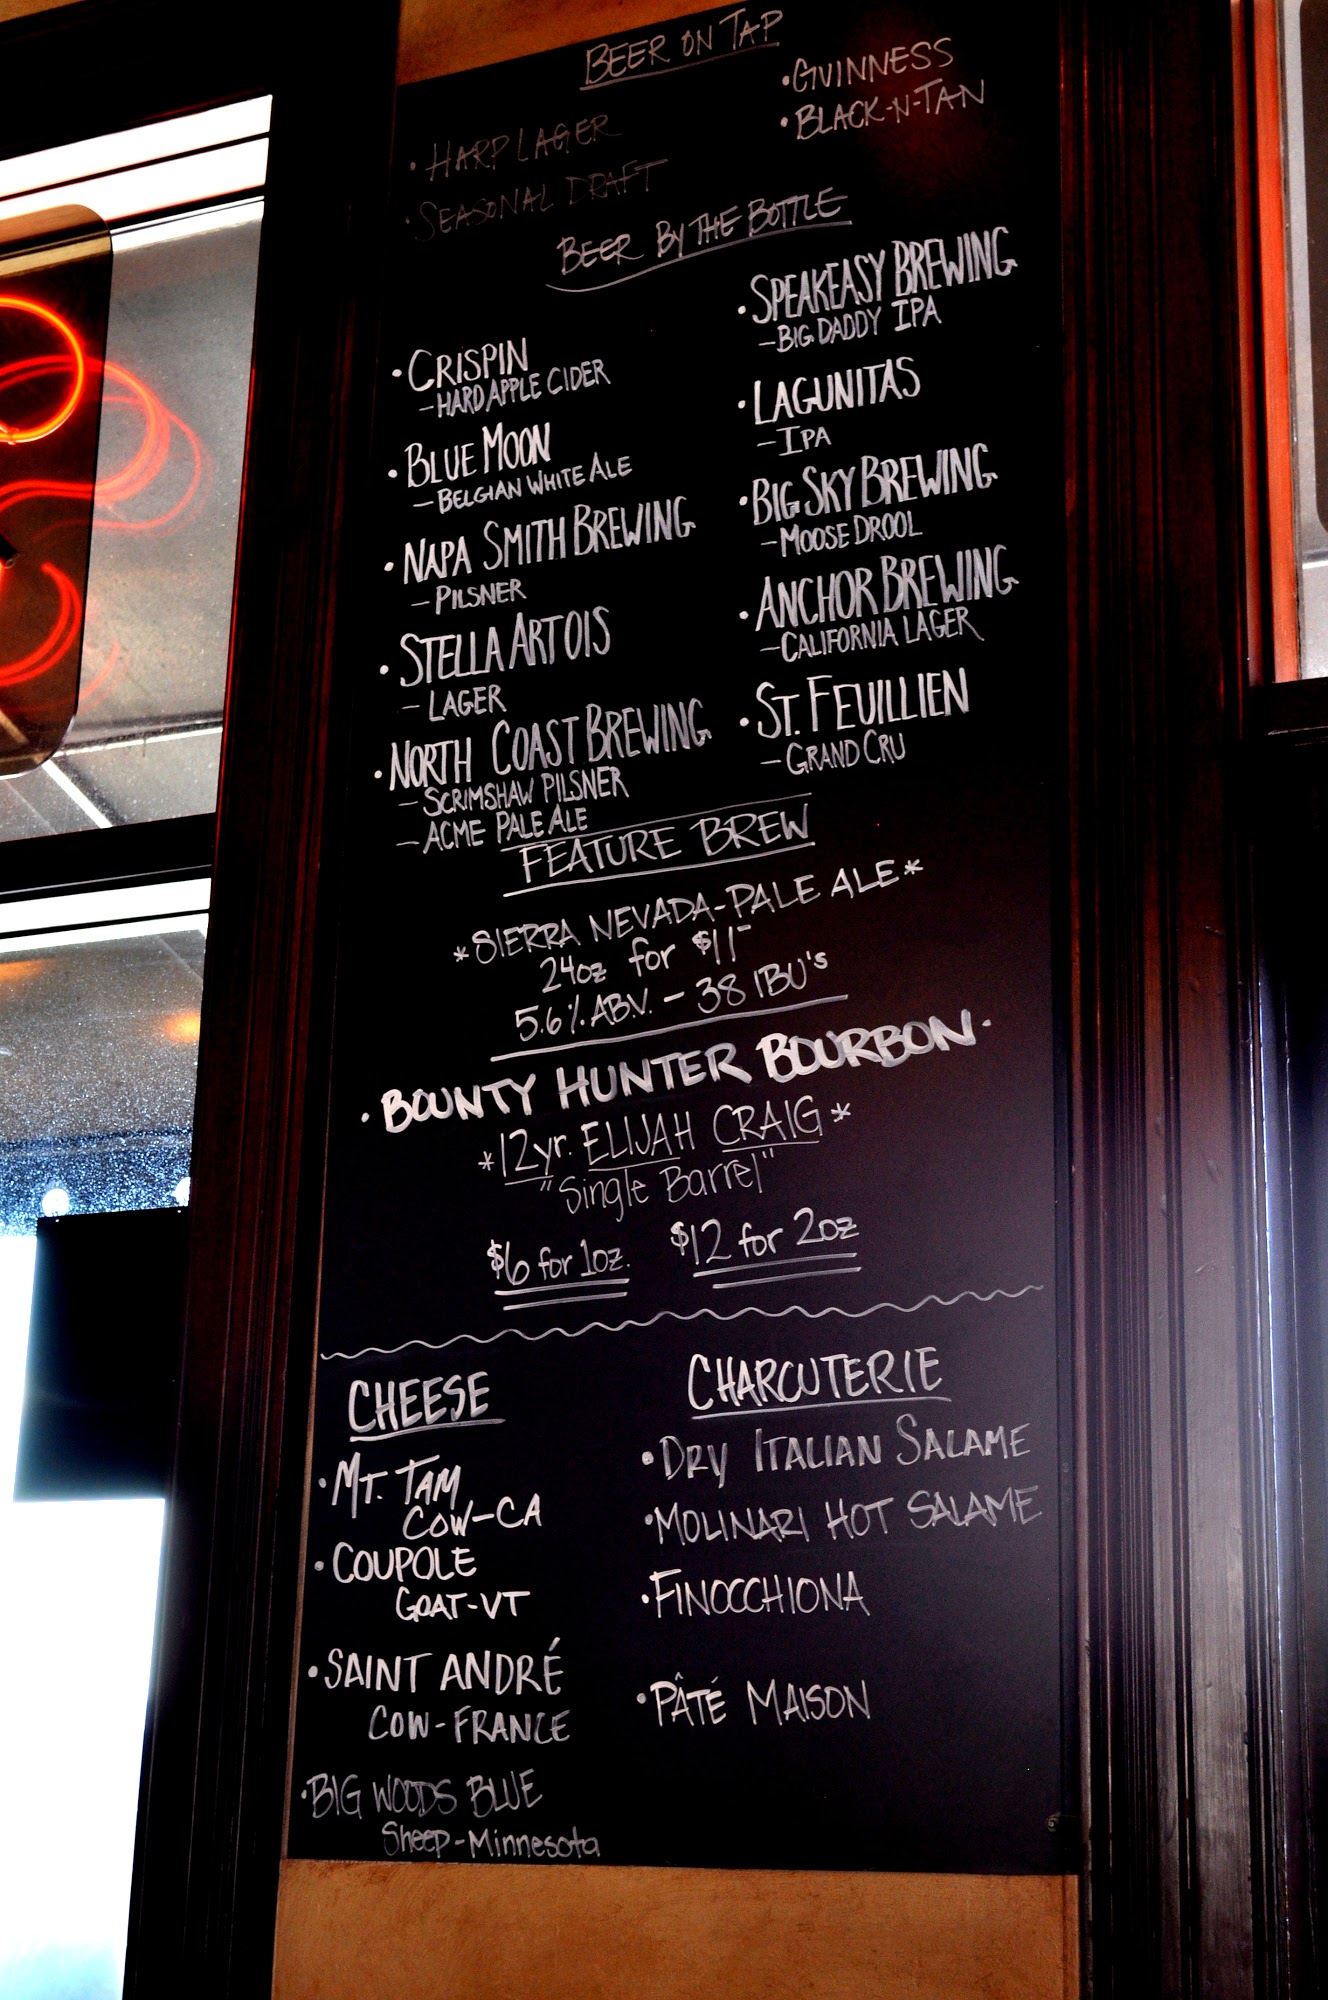 BEER ON TAP
• HARP LAGER
• SEASONAL DRAFT
• GUINNESS
• BLACK-N-TAN
BEER BY THE BOTTLE
• CRISPIN
- HARD APPLE CIDER
• BLUE MOON
- BELGIAN WHITE ALE
• NAPA SMITH BREWING
- PILSNER
• STELLA ARTOIS
- LAGER
• NORTH COAST BREWING
- SCRIMSHAW PILSNER
- ACME PALE ALE
• SPEAKEASY BREWING
- BIG DADDY IPA
• LAGUNITAS
- IPA
• BIG SKY BREWING
- MOOSE DROOL
• ANCHOR BREWING
- CALIFORNIA LAGER
• ST. FEUILLIEN
- GRAND CRU
FEATURE BREW
*SIERRA NEVADA-PALE ALE*
24oz for $11-
5.6% ABV. - 38 IBU's
• BOUNTY HUNTER BOURBON •
*12yr. ELIJAH CRAIG*
"Single Barrel"
$6 for 1oz. $12 for 2oz
CHEESE
• MT. TAM
COW-CA
• COUPOLE
GOAT-VT
• SAINT ANDRÉ
COW-FRANCE
• BIG WOODS BLUE
Sheep-Minnesota
CHARCUTERIE
• DRY ITALIAN SALAME
• MOLINARI HOT SALAME
• FINOCCHIONA
• PÂTÉ MAISON